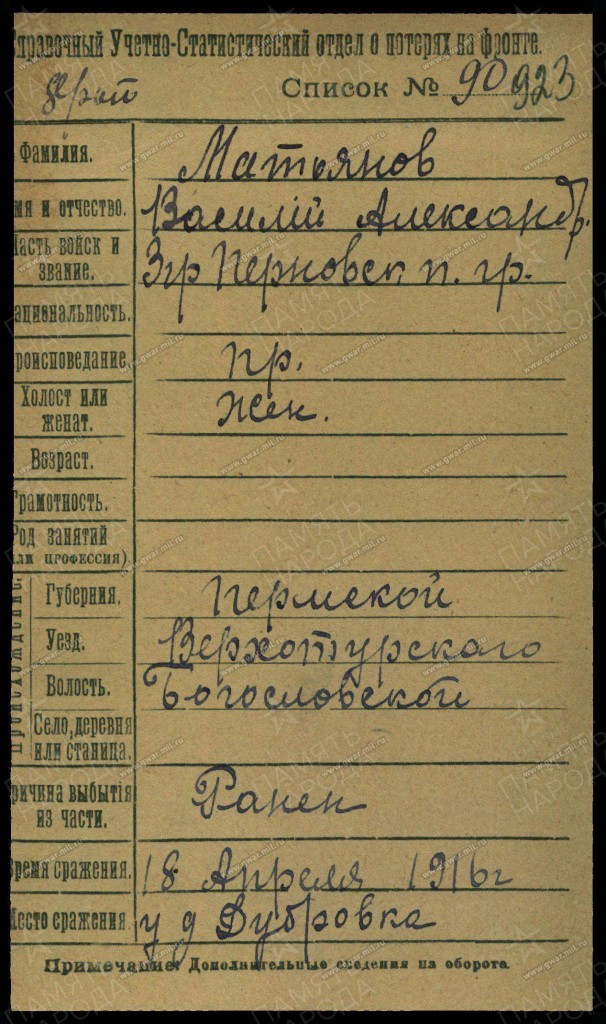 Справочный Учетно-Статистический отдел о потерях на фронте.
Список № 90923
Фамилия. Матьянов
Имя и отчество. Василий Александр.
Часть войск и звание. 3гр Перновск п. гр.
Национальность.
Вероисповедание. пр.
Холост или женат. Жен.
Возраст.
Грамотность.
Род занятий (или профессия).
Происхождение.
Губерния. Пермской
Уезд. Верхотурского
Волость. Богословской
Село, деревня или станица.
Причина выбытія из части. Ранен
Время сражения. 18 Апреля 1916г
Место сражения. у д Дубровка
Примечание: Дополнительные сведения на обороте.